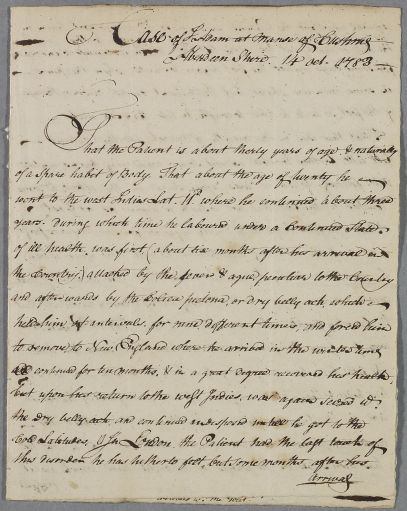 Case of  Adam at Manse of Cushnie
Aberdeen Shire. 14 Oct. 1783
That the Patient is about therty years of age & naturally
of a spare habit of Body. That about the age of twenty he
went to the west Indies Lat. 11° where he continued about three
years. During which time he laboured under a Continued State
of ill health. was first (about six months after his arrival in
the Country) attacked by the fever & ague peculiar to the Country
and afterwards by the Colica pictona, or dry belly ach, which
held him at intervals for nine different times, and forced him
to remove to New England where he arrived in the winter time
continued for ten months, & in a great degree recovered his health
but upon his return to the west Indies, was again seized wt.
the dry belly ach, and continued indisposed untill he got to the
Cold Latitudes. In London the Patient had the last touch of
this disorder he has hitherto felt, but some months after his
arrival